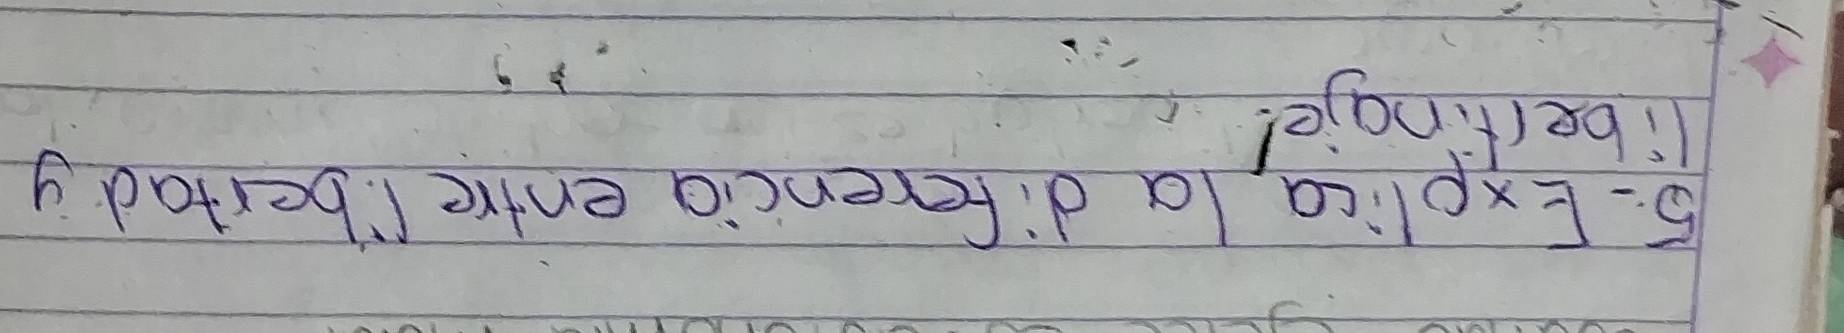 5.- Explica la diferencia entre libertad y
libertinaje.